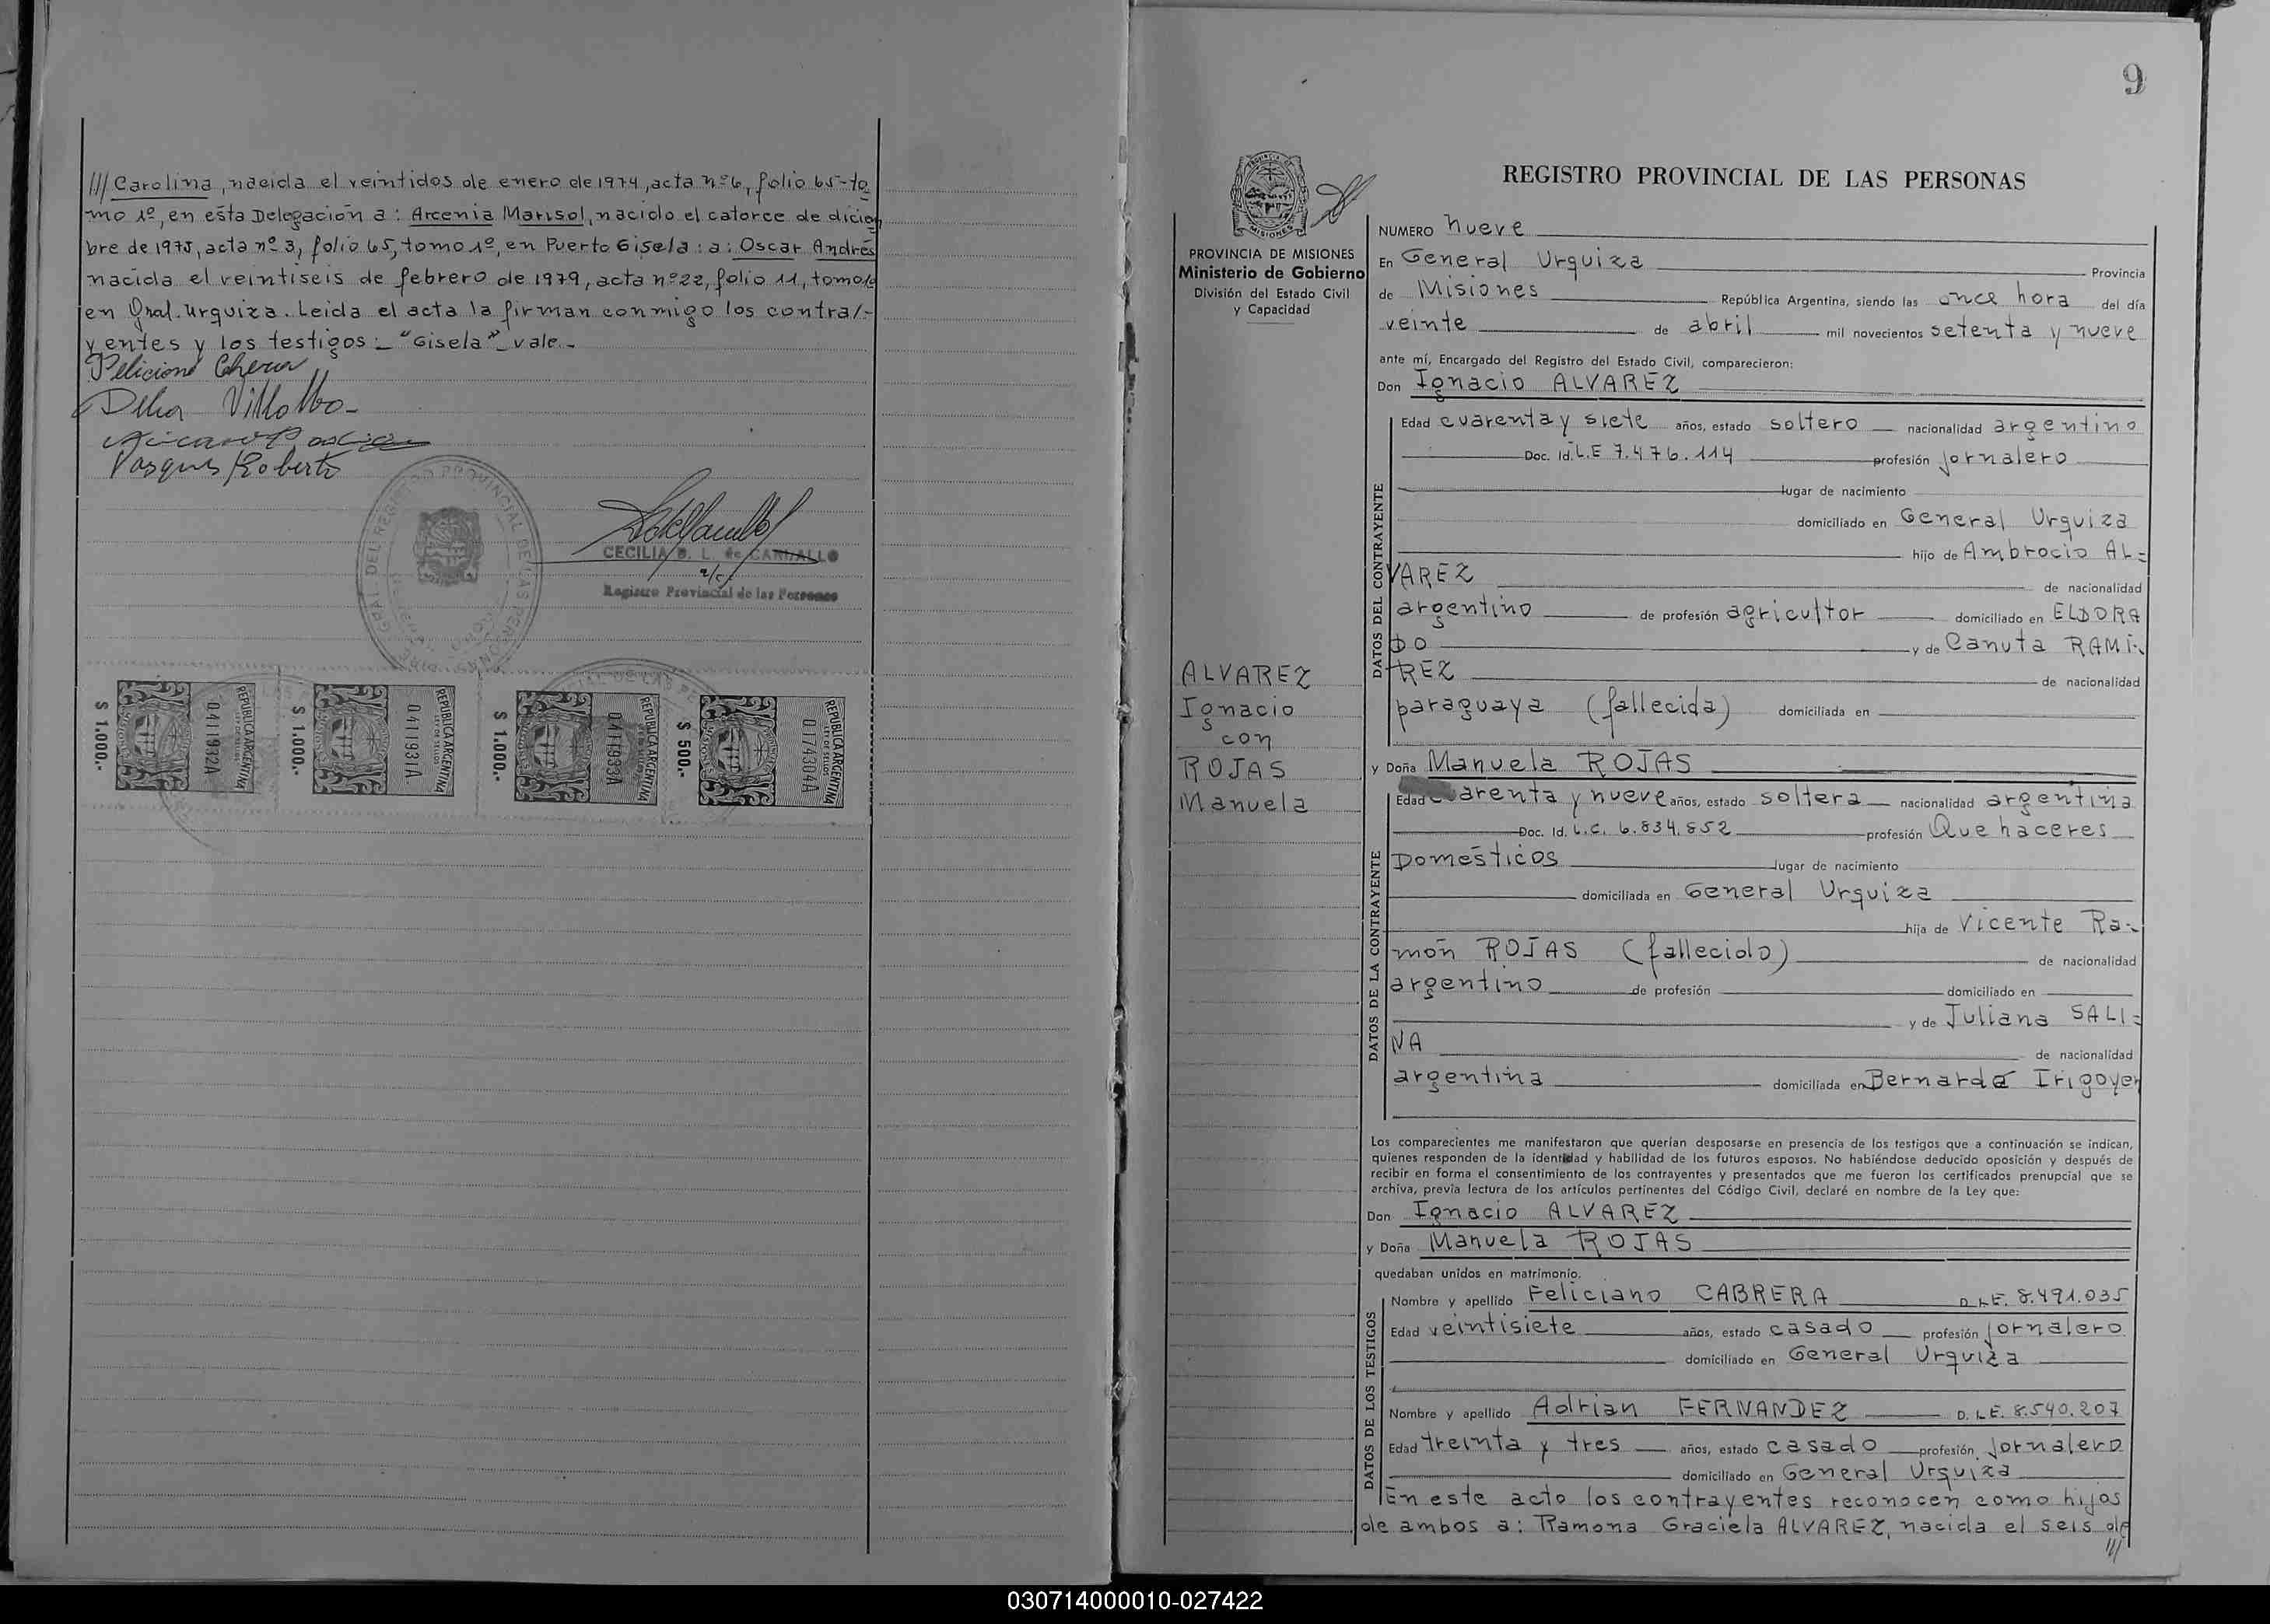 /// Carolina, nacida el veintidos de enero de 1974, acta nº 6, folio 65-to
mo 1º, en esta Delegación a: Arcenia Marisol, nacido el catorce de diciem
bre de 1975, acta nº 3, folio 65, tomo 1º, en Puerto Gisela: a: Oscar Andrés
nacida el veintiseis de febrero de 1979, acta nº 22, folio 11, tomo 1º
en Gral. Urquiza. Leida el acta la firman conmigo los contra/-
yentes y los testigos:- "Gisela" vale.-
Delia Villalba
Roberto
CECILIA D. L. de CARBALLO
Registro Provincial de las Personas
$ 1.000.-
0411932A
REPUBLICA ARGENTINA
LEY DE SELLOS
$ 1.000.-
0411931A
REPUBLICA ARGENTINA
LEY DE SELLOS
$ 1.000.-
0411933A
REPUBLICA ARGENTINA
$ 500.-
0174304A
REPUBLICA ARGENTINA
LEY DE SELLOS
9
PROVINCIA DE MISIONES
Ministerio de Gobierno
División del Estado Civil
y Capacidad
ALVAREZ
Ignacio
con
ROJAS
Manuela
REGISTRO PROVINCIAL DE LAS PERSONAS
NUMERO nueve
En General Urquiza Provincia
de Misiones República Argentina, siendo las once hora del día
veinte de abril mil novecientos setenta y nueve
ante mí, Encargado del Registro del Estado Civil, comparecieron:
Don Ignacio ALVAREZ
DATOS DEL CONTRAYENTE
Edad cuarenta y siete años, estado soltero nacionalidad argentino
Doc. Id. L.E 7.476.114 profesión jornalero
lugar de nacimiento
domiciliado en General Urquiza
hijo de Ambrocio AL=
VAREZ de nacionalidad
argentino de profesión agricultor domiciliado en ELDORA
DO y de Canuta RAMI-
REZ de nacionalidad
paraguaya (fallecida) domiciliada en
y Doña Manuela ROJAS
DATOS DE LA CONTRAYENTE
Edad cuarenta y nueve años, estado soltera nacionalidad argentina
Doc. Id. L.C. 6.834.852 profesión Que haceres
Domésticos lugar de nacimiento
domiciliada en General Urquiza
hija de Vicente Ra-
món ROJAS (fallecido) de nacionalidad
argentino de profesión domiciliado en
y de Juliana SALI=
NA de nacionalidad
argentina domiciliada en Bernardo Irigoyen
Los comparecientes me manifestaron que querían desposarse en presencia de los testigos que a continuación se indican,
quienes responden de la identidad y habilidad de los futuros esposos. No habiéndose deducido oposición y después de
recibir en forma el consentimiento de los contrayentes y presentados que me fueron los certificados prenupcial que se
archiva, previa lectura de los artículos pertinentes del Código Civil, declaré en nombre de la Ley que:
Don Ignacio ALVAREZ
y Doña Manuela ROJAS
quedaban unidos en matrimonio.
DATOS DE LOS TESTIGOS
Nombre y apellido Feliciano CABRERA D. L.E. 8.491.035
Edad veintisiete años, estado casado profesión jornalero
domiciliado en General Urquiza
Nombre y apellido Adrian FERNANDEZ D. L.E. 8.540.207
Edad treinta y tres años, estado casado profesión jornalero
domiciliado en General Urquiza
En este acto los contrayentes reconocen como hijos
de ambos a: Ramona Graciela ALVAREZ, nacida el seis de
///
030714000010-027422